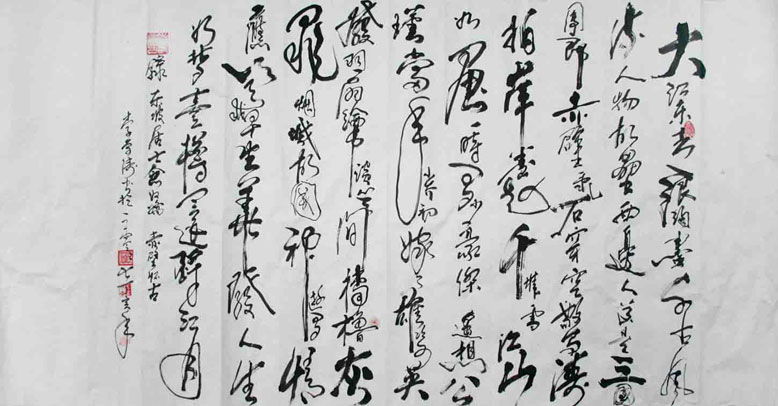 大江東去浪淘盡千古風
流人物故壘西邊人道是三國
周郎赤壁亂石穿空驚濤
拍岸卷起千堆雪江山
如畫一時多少豪傑遥想公
瑾當年小喬初嫁了雄姿英
發羽扇綸巾談笑間檣櫓灰
飛烟滅故國神遊多情
應笑我早生華發人生
如夢壹樽還酹江月
錄東坡居士念奴嬌赤壁懷古